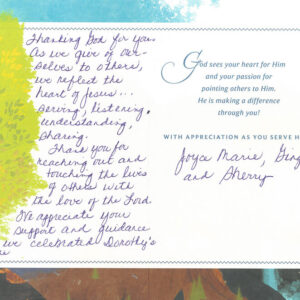 Thanking God for you.
As we give of our-
selves to others,
we reflect the
heart of Jesus...
serving, listening,
understanding,
sharing.
Thank you for
reaching out and
touching the lives
of others with
the love of the Lord.
We appreciate your
support and guidance
we celebrated Dorothy's
God sees your heart for Him
and your passion for
pointing others to Him.
He is making a difference
through you!
WITH APPRECIATION AS YOU SERVE H
Joyce Marie, Ging
and Sherry